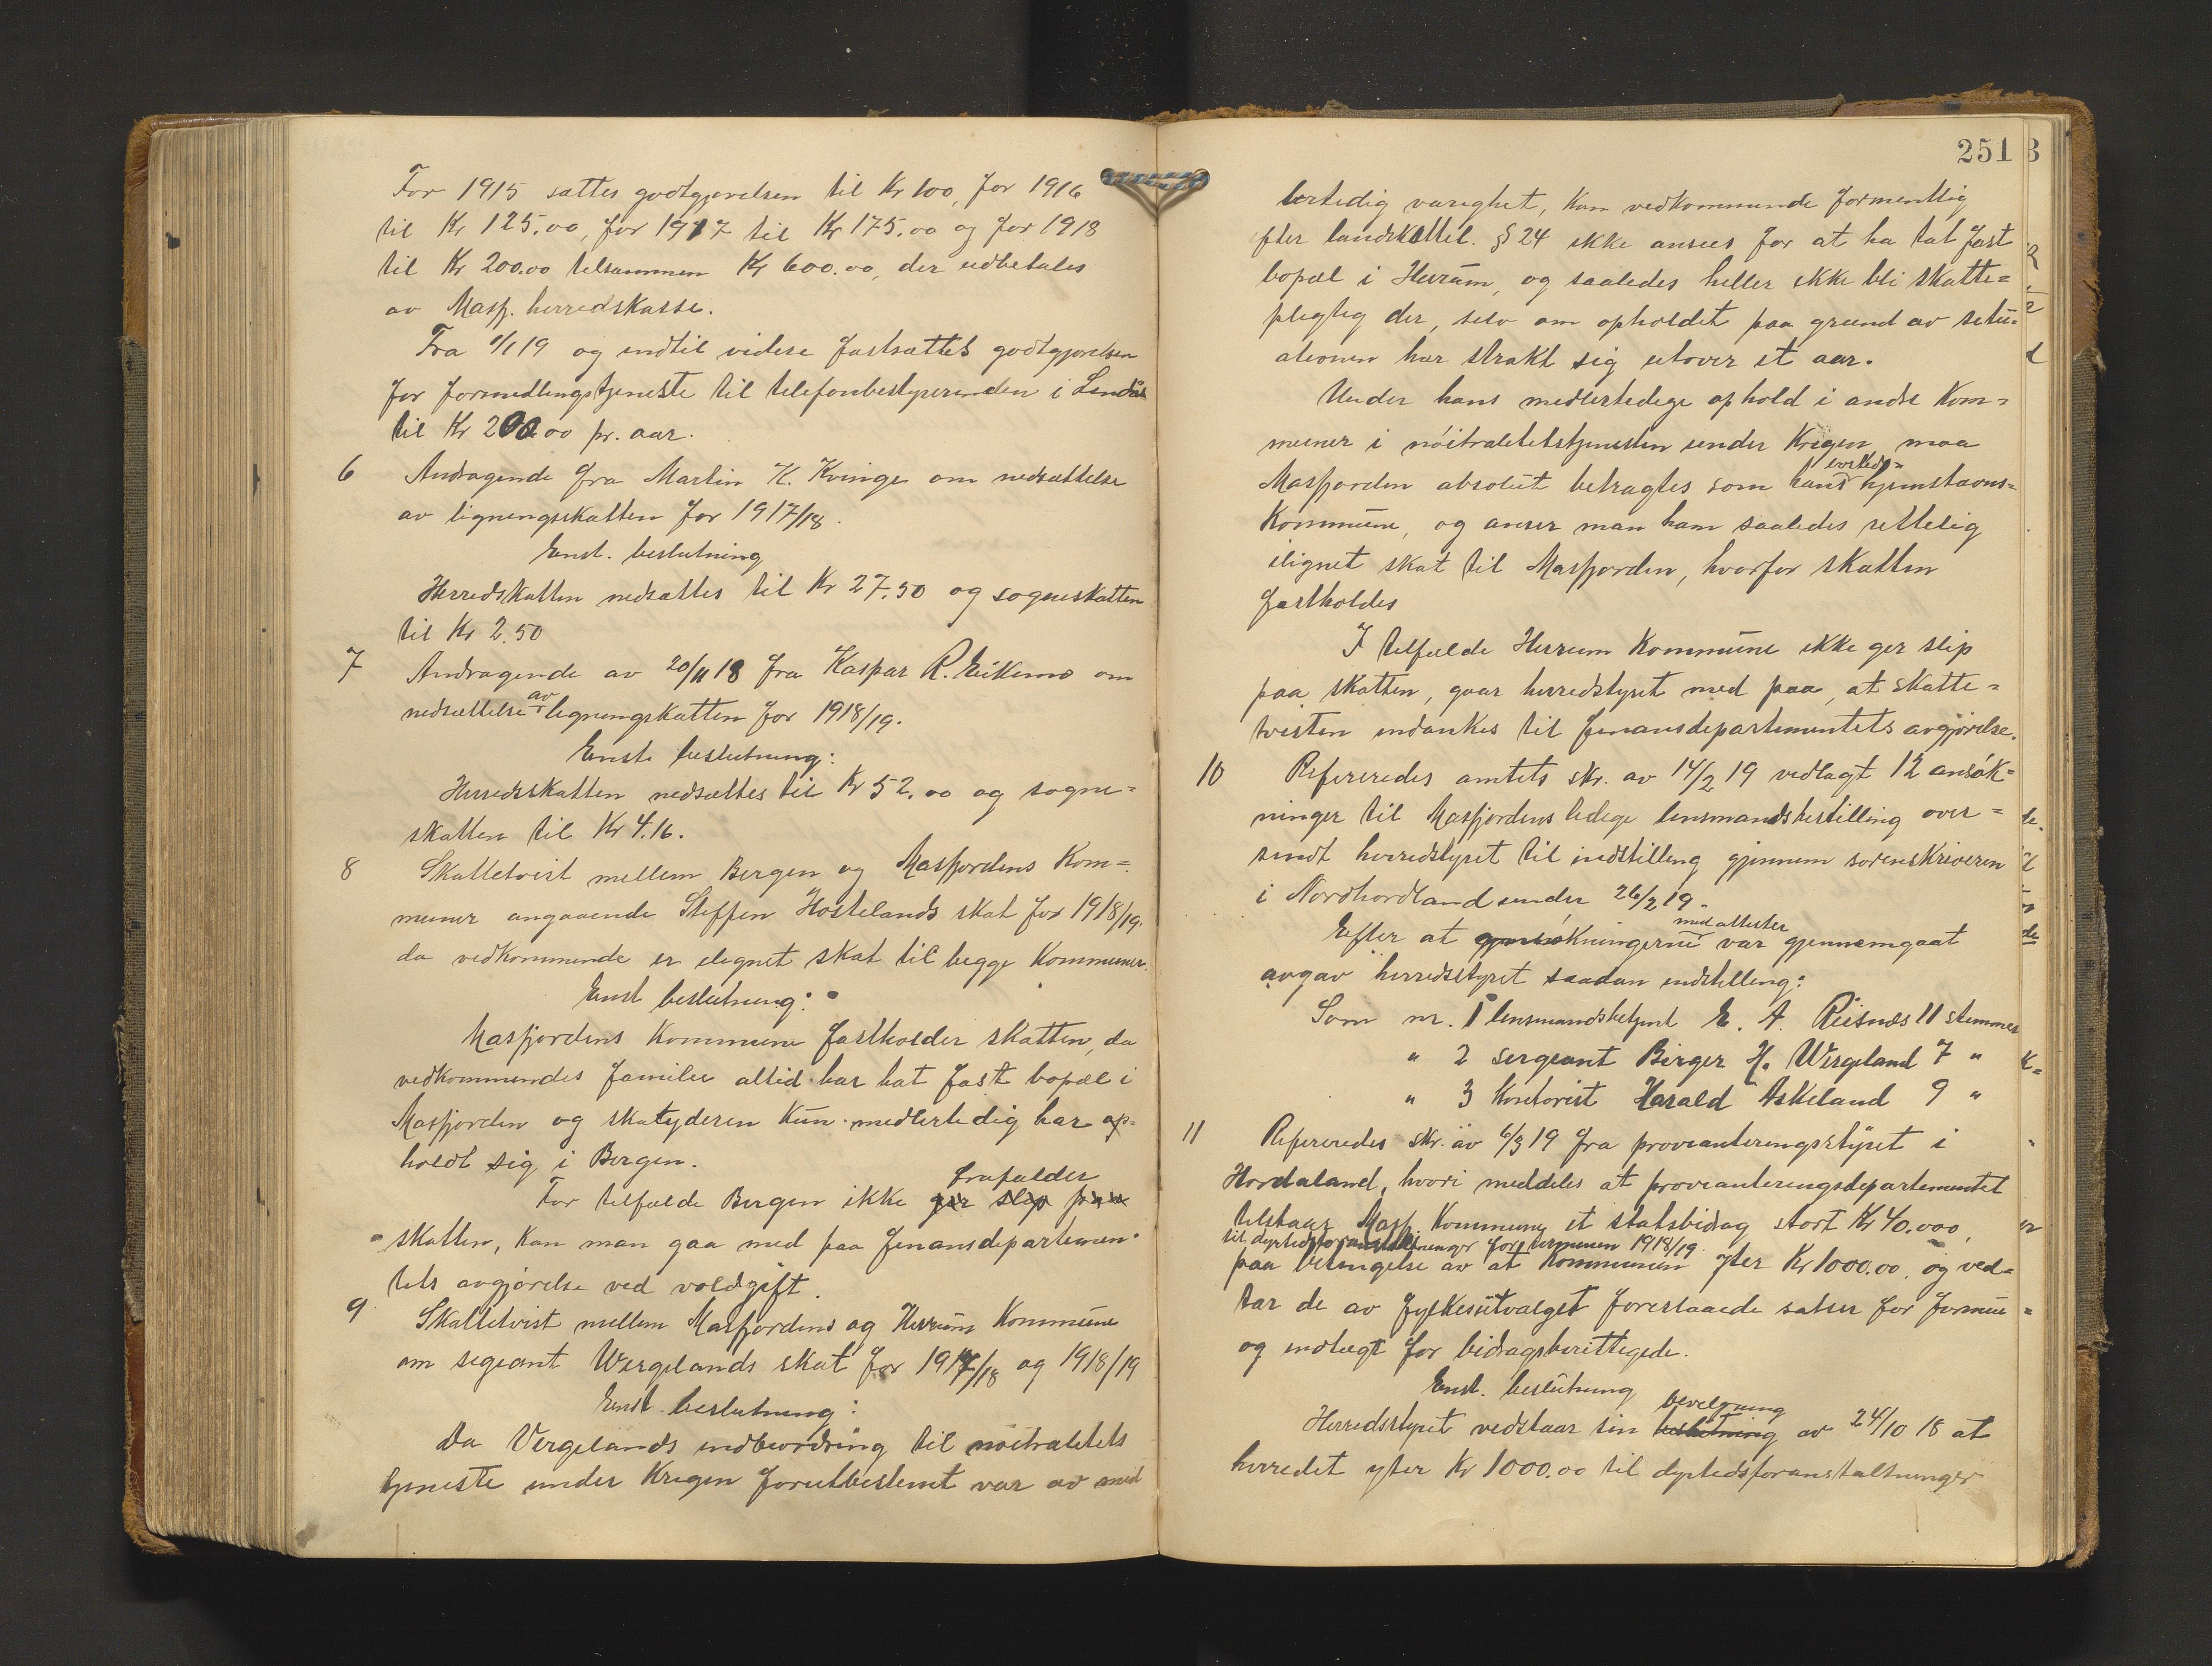 For 1915 sættes godtgjørelsen til Kr 100, for 1916
til Kr 125.00, for 1917 til Kr 175.00 og for 1918
til Kr 200.00 tilsammen Kr 600.00, der udbetales
av Masf. herredskasse.
Fra 1/1 19 og indtil videre fastsættes godtgjørelsen
for formidlingstjeneste til telefonbestyrerinden i Lindås
til Kr 200.00 pr. aar.
6 Andragende fra Martin K. Kvinge om nedsættelse
av ligningsskatten for 1917/18.
Enst. beslutning
Herredskatten nedsættes til Kr 27.50 og sogneskatten
til Kr 2.50
7 Andragende av 20/11 18 fra Kaspar R. Eikemo om
nedsættelse av ligningskatten for 1918/19.
Enst. beslutning:
Herredsskatten nedsættes til Kr 52.00 og sogne=
skatten til Kr 4.16.
8 Skattetvist mellem Bergen og Masfjordens Kom=
muner angaaende Steffen Hostelands skat for 1918/19.
da vedkommende er ilignet skat til begge Kommuner.
Enst beslutning:
Masfjordens Kommune fastholder skatten, da
vedkommendes familie altid har hat fast bopæl i
Masfjorden og skatyderen kun medlertidig har op=
holdt sig i Bergen.
frafalder
For tilfælde Bergen ikke ger slip paa
skatten, kan man gaa med paa finansdepartemen=
tets avgjørelse ved voldgift.
9 Skattetvist mellem Masfjordens og Hurum Kommune
om segeant Wergelands skat for 1917/18 og 1918/19
Enst. beslutning:
Da Vergelands indbeordring til nøitralitets
tjeneste under Krigen forutbestemt var av mid
251
lertidig varighet, kan vedkommende formentlig
efter landskattel. § 24 ikke ansees for at ha tat fast
bopæl i Hurum, og saaledes heller ikke bli skatte=
plegtig der, selv om opholdet paa grund av situ=
ationen har strakt sig utover et aar.
Under hans medlertidige ophold i andre Kom=
muner i nøitralitetstjenesten under Krigen maa
Masfjorden absolut betragtes som hans hjemstavns=
Kommune, og anser man ham saaledes rettelig
ilignet skat til Masfjorden, hvorfor skatten
fastholdes
I tilfælde Hurum Kommune ikke ger slip
paa skatten, gaar herredstyret med paa, at skatte=
tvisten indankes til finansdepartementets avgjørelse.
10 Refereredes amtets skr. av 14/2 19 vedlagt 12 ansøk=
ninger til Masfjordens ledige lensmandsbestilling over=
sendt herredstyret til indstilling gjennem sorenskriveren
i Nordhordland under 26/2 19.
med attester
Efter at ansøkningerne var gjennemgaat
avgav herredsstyret saadan indstilling:
Som nr. 1 lensmandsbetjent E. A. Risnes 11 stemmer
" 2 sergeant Birger H. Wergeland 7 "
" 3 Kontorist Harald Askeland 9 "
11 Refereredes skr. av 6/3 19 fra provianteringsstyret i
Hordaland, hvori meddeles at provianteringsdepartementet
tilstaar Masf. Kommune et statsbidrag stort Kr 40.000,
til dyrtidsforanstaltninger for terminen 1918/19
paa betingelse av at Kommunen yter Kr 1000.00. og ved=
tar de av fylkesutvalget foreslaaede satser for formue=
og indtægt for bidragsberittigede.
Enst. beslutning
bevilgning
Herredsstyret vedstaar sin beslutning av 24/10 18 at
herredet yter Kr 1000.00 til dyrtidsforanstaltninger